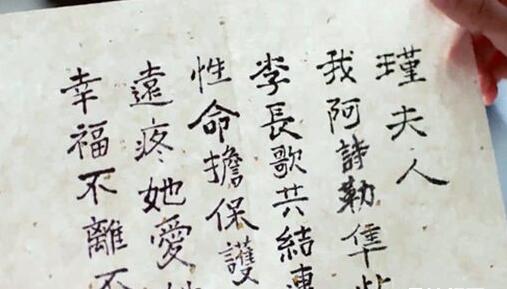 瑾夫人
我阿詩勒隼
李長歌共結
性命擔保護
遠疼她愛
幸福不離不